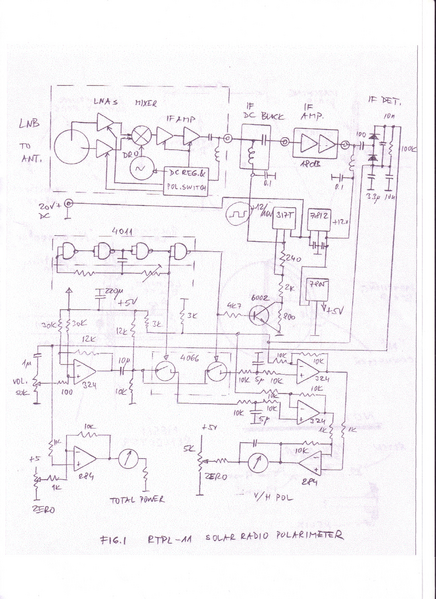 LNAS MIXER
IF AMP
LNB
TO
ANT.
DRO
DC REG.&
POL.SWITCH
IF
DC BLOCK
IF
AMP.
40dB
IF DET.
10n
100
100k
0.1
0.1
3.3µ
10n
20V
DC
317T
7812
+12V
4011
240
2k
7805
+5V
220µ
+5V
3k
4k7
800
30k
30K
12K
3k
12k
1µ
10µ
VOL.
50K
100
324
10K
4066
10k
5µ
10k
10k
10k
324
10k
10k
10k
5µ
10k
324
1k
1k
+5
ZERO
1K
1k
10k
284
TOTAL POWER
+5V
5K
ZERO
10k
284
V/H POL
FIG.1 RTPL-11 SOLAR RADIO POLARIMETER